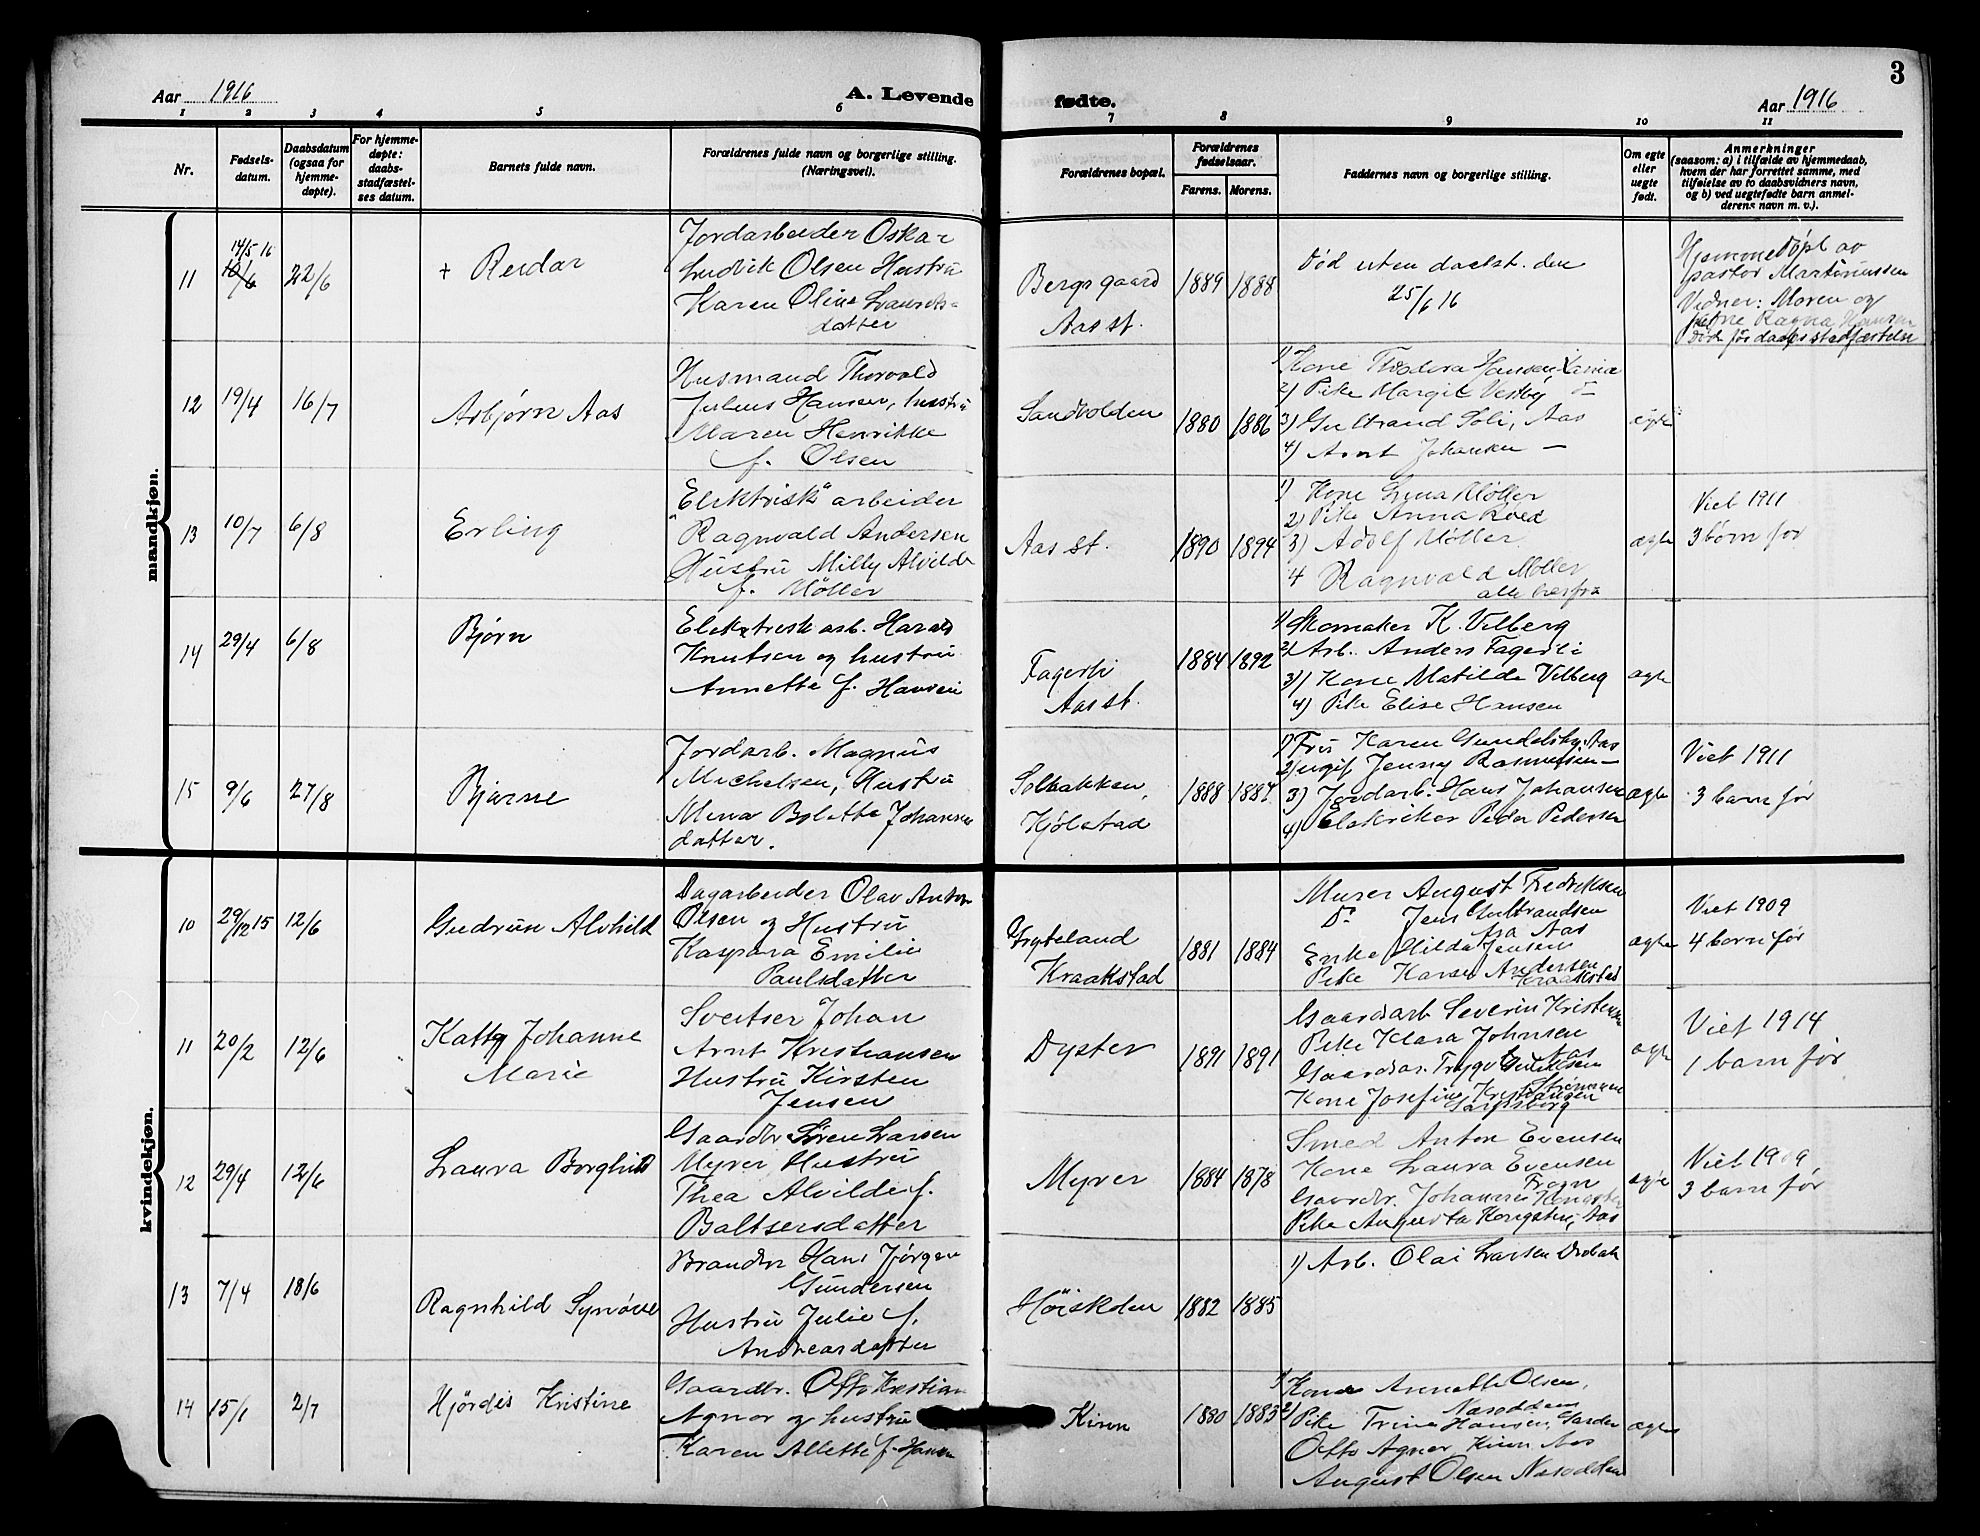 3
Aar 1916 A. Levende fødte. Aar 1916
1 2 3 4 5 6 7 8 9 10 11
Nr.
Fødsels-
datum.
Daabsdatum
(ogsaa for
hjemme-
døpte).
For hjemme-
døpte:
daabs-
stadfæstel-
ses datum.
Barnets fulde navn.
Forældrenes fulde navn og borgerlige stilling.
(Næringsvei).
Forældrenes bopæl.
Forældrenes
fødselsaar.
Farens. Morens.
Faddernes navn og borgerlige stilling.
Om egte
eller
uegte
født.
Anmerkninger
(saasom: a) i tilfælde av hjemmedaab,
hvem der har forrettet samme, med
tilføielse av to daabsvidners navn,
og b) ved uegtefødte barn anmel-
derens navn m. v.).
mandkjøn.
11
14/5 16
10/6
22/6
+ Reidar
Jordarbeider Oskar
Ludvik Olsen Hustru
Karen Oline Laurets-
datter
Bergsgaard
Aas st.
1889 1888
Død uten daabst. den
25/6 16
Hjemmedöpt av
pastor Martinussen
Vidner: Moren og
Kone Ragna Hansen
Död för daabsstadfæstelse
12 19/4 16/7
Asbjørn Aas
Husmand Thorvald
Julius Hansen, hustru
Maren Henrikke
f. Olsen
Sandholden
1880 1886
1) Kone Theodora Hansen
2) Pike Margit Vestby
3) Gulbrand Soli, Aas
4) Arnt Johansen —
egte
13 10/7 6/8
Erling
"Elektrisk" arbeider
Ragnvald Andersen
Hustru Milly Alvilde
f. Möller
Aas st.
1890 1894
1) Kone Lina Möller
2) Pike Anna
3) Adolf Möller
4 Ragnvald Möller
alle herfra
ægte
Viet 1911
3 børn før
14 29/4 6/8
Bjørn
Elektrisk arb. Harald
Knutsen og hustru
Annette f. Hansen
Fagerli
Aas st.
1884 1892
1) Skomaker K. Vilberg
2) Arb. Anders Fagerli
3) Kone Matilde Vilberg
4) Pike Elise Hansen
ægte
15 9/6 27/8
Bjarne
Jordarb. Magnus
Michelsen, Hustru
Mina Bolette Johannes
datter.
Solbakken,
Kjölstad
1888 1887
1) Frü Karen Gundelsby, Aas
2) ugif Jenny Rasmussen —
3) Jordarb. Hans Johansen
4) Elekriker Peder Pedersen
ægte
Viet 1911
3 barn før
kvindekjøn.
10 29/12 15 12/6
Gudrun Alvhild
Dagarbeider Olav Anton
Olsen og Hustru
Kaspara Emilie
Paulsdatter
Ygteland
Kraakstad
1881 1884
Murer August Fredriksen
Do Jens Gulbrandsen
fra Aas
Enke Hilda Jensen
Pike Karen Andersen
Kraakstad
ægte
Viet 1909
4 barn før
11 20/2 12/6
Katty Johanne
Marie
Sveitser Johan
Arnt Kristiansen
Hustru Kirsten
Jensen
Dyster
1891 1891
Gaardsarb Severin Kristensen
Pike Klara Johnsen
Aas
Kone Josefine Kristiansen
Sarpsborg
ægte
Viet 1914
1 barn før
12 29/4 12/6
Laura Borghild
Gaardbr Søren Larsen
Myrer Hustru
Thea Alvilde f.
Baltsersdatter
Myrer
1884 1878
Smed Anton Evensen
Kone Laura Evensen
Frogn
Gaardbr. Johannes
Pike Augusta Kongsten, Aas
ægte
Viet 1909
3 barn før
13 7/4 18/6
Ragnhild Synöve
Brandbr Hans Jörgen
Gundersen
Hustru Julie f.
Andreasdatter
Höiskolen
1882 1885
1) Arb. Olai Larsen Drobak
14 15/1 2/7
Hjördis Kristine
Gaardbr. Otto Kristian
Agnor og hustru
Karen Allette f. Hansen
Kinn
1880 1883
1) Kone Annette Olsen,
Nesodden
2) Pike Trine Hansen, Garder
Otto Agnor, Kinn Aas
August Olsen Nesodden
ægte